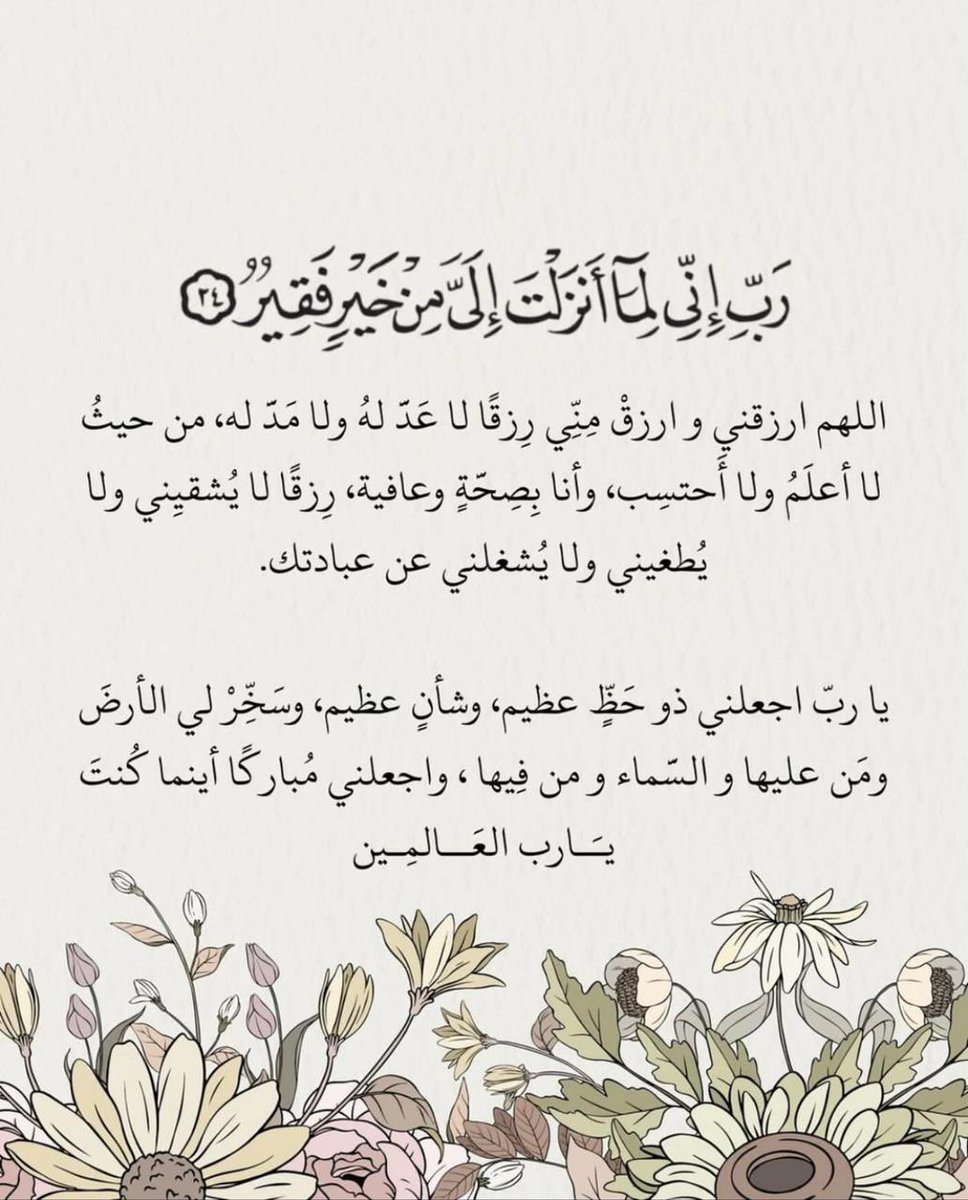 رَبِّ إِنِّى لِمَآ أَنزَلْتَ إِلَىَّ مِنْ خَيْرٍ فَقِيرٌ ٢٤
اللهم ارزقني و ارزقْ مِنِّي رِزقًا لا عَدّ لهُ ولا مَدّ له، من حيثُ
لا أعلَمُ ولا أَحتسِب، وأنا بِصِحّةٍ وعافية، رِزقًا لا يُشقيِني ولا
يُطغيني ولا يُشغلني عن عبادتك.
يا ربّ اجعلني ذو حَظٍّ عظيم، وشأنٍ عظيم، وسَخِّرْ لي الأرضَ
ومَن عليها و السّماء و من فِيها ، واجعلني مُباركًا أينما كُنتَ
يَـــارب العَـــالمِــين